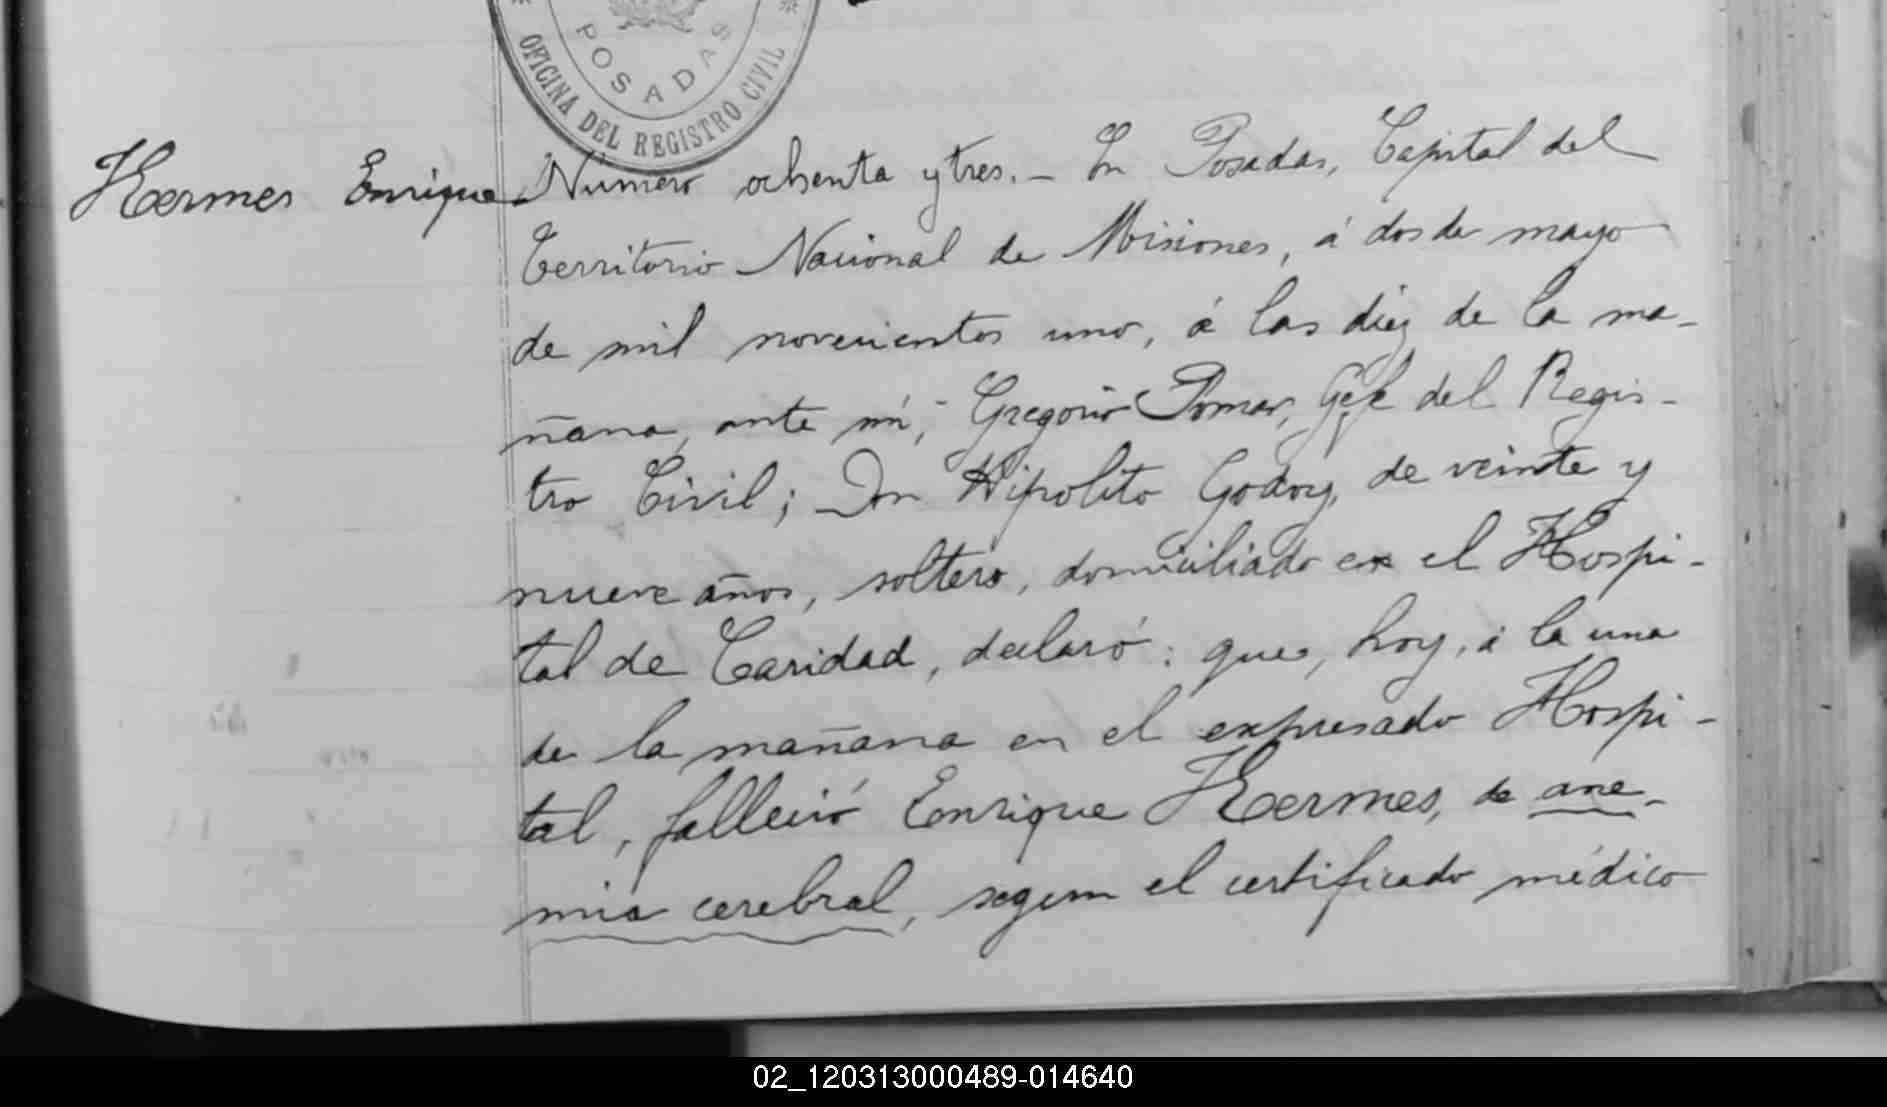 POSADAS
OFICINA DEL REGISTRO CIVIL
Hermes Enrique
Número ochenta y tres. – En Posadas, Capital del
Territorio Nacional de Misiones, á dos de mayo
de mil novecientos uno, á las diez de la ma-
ñana, ante mí, Gregorio Pomar, Gefe del Regis-
tro Civil; Don Hipolito Godoy, de veinte y
nueve años, soltero, domiciliado en el Hospi-
tal de Caridad, declaró: que, hoy, á la una
de la mañana en el expresado Hospi-
tal, falleció Enrique Hermes, de ane-
mia cerebral, segun el certificado médico
02_120313000489-014640